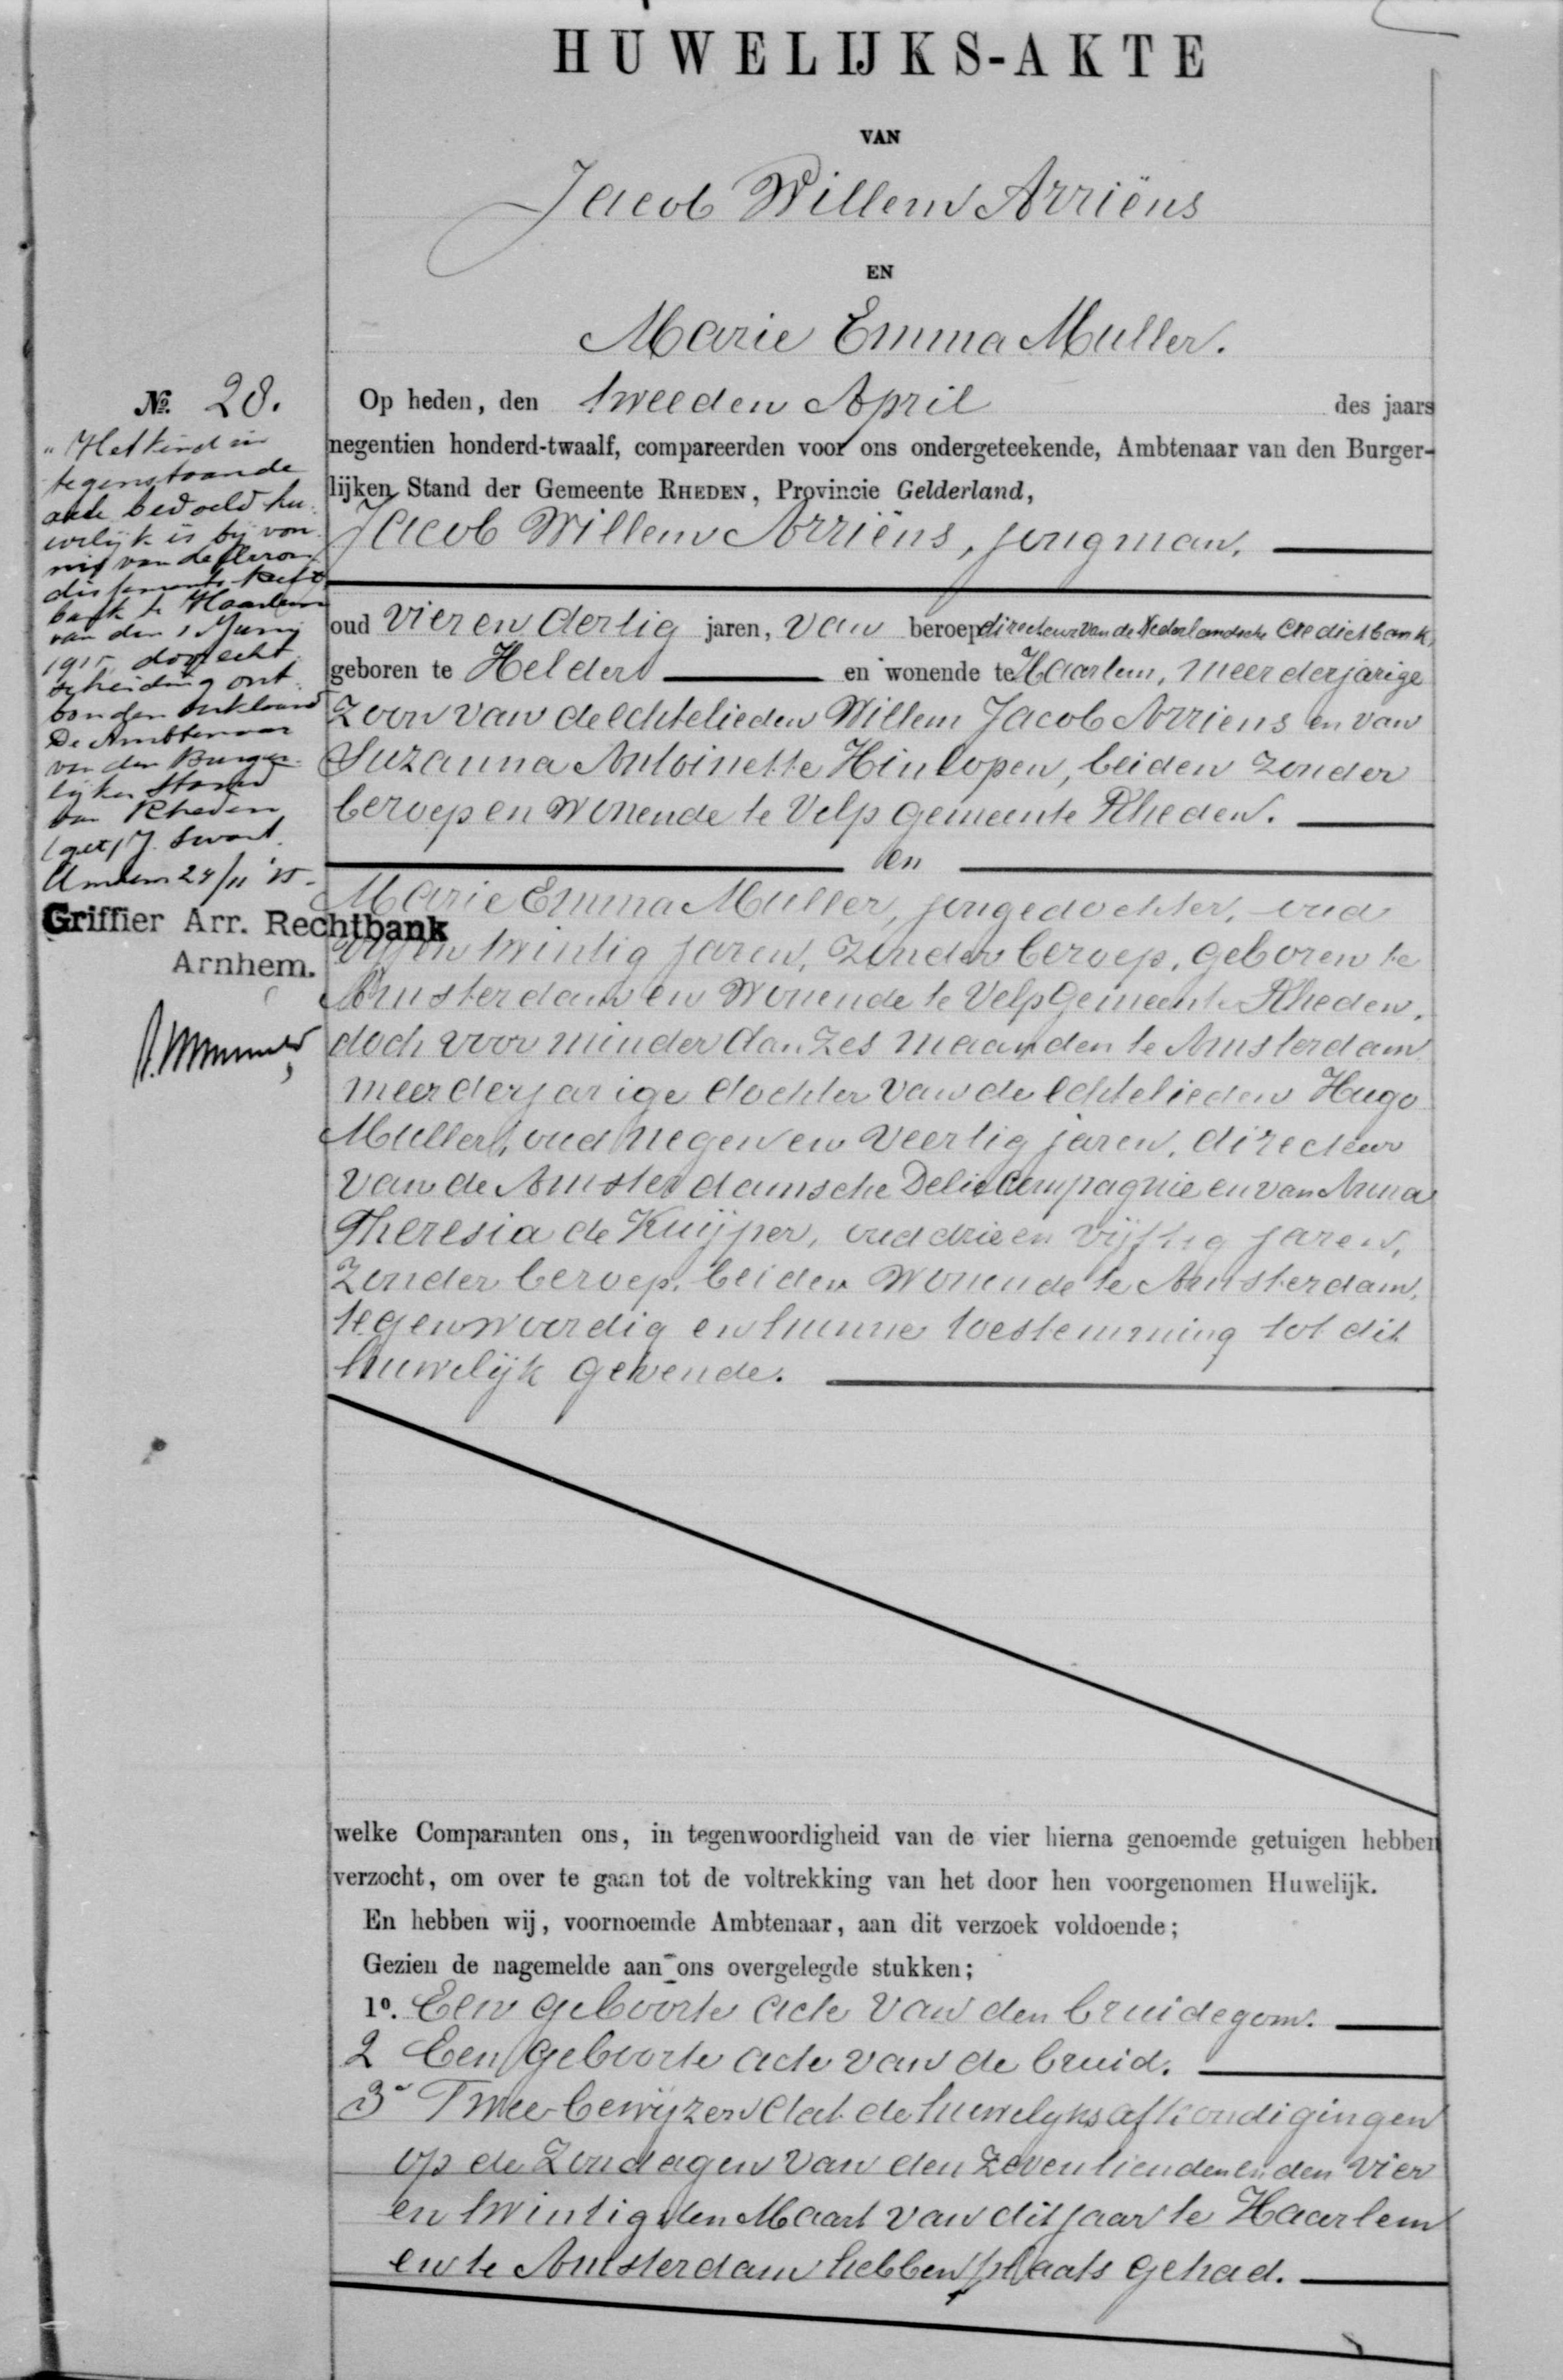 HUWELIJKS-AKTE
VAN
Jacob Willem Arriëns
EN
Marie Emma Muller.
№ 28.
"Het bind in
tegenstaande
akte bedoeld hu-
welijk is bij von-
nis van de Arron-
dissements-Recht-
bank te Haarlem
van den 1 Juny
1915, door echt-
scheiding ont-
bonden verklaard
De Ambtenaar
van den Burger-
lijken Stand
van Rheden
(get) J. Swart.
Arnhem 24/11 '15.
Griffier Arr. Rechtbank
Arnhem.
Op heden, den tweeden April des jaars
negentien honderd-twaalf, compareerden voor ons ondergeteekende, Ambtenaar van den Burger-
lijken Stand der Gemeente RHEDEN, Provincie Gelderland,
Jacob Willem Arriëns, jongman,
oud vier en dertig jaren, van beroep directeur van de Nederlandsche Credietbank,
geboren te Helder en wonende te Haarlem, meerderjarige
zoon van de echtelieden Willem Jacob Arriens en van
Suzanna Antoinette Hinlopen, beiden zonder
beroep en wonende te Velp gemeente Rheden.
en
Marie Emma Muller, jongedochter, oud
vijf en twintig jaren, zonder beroep, geboren te
Amsterdam en wonende te Velp gemeente Rheden,
doch voor minder dan zes maanden te Amsterdam
meerderjarige dochter van de echtelieden Hugo
Muller, oud negen en veertig jaren, directeur
van de Amsterdamsche Deli Compagnie en van Anna
Theresia de Kuijper, oud drie en vijftig jaren,
zonder beroep, beiden wonende te Amsterdam,
tegenwoordig en hunne toestemming tot dit
huwelijk gevende.
welke Comparanten ons, in tegenwoordigheid van de vier hierna genoemde getuigen hebben
verzocht, om over te gaan tot de voltrekking van het door hen voorgenomen Huwelijk.
En hebben wij, voornoemde Ambtenaar, aan dit verzoek voldoende;
Gezien de nagemelde aan ons overgelegde stukken;
1º. Een geboorte acte van den bruidegom.
2 Een geboorte acte van de bruid.
3º Twee bewijzen dat de huwelijksafkondigingen
op de Zondagen van den zeventienden en den vier
en twintigsten Maart van dit jaar te Haarlem
en te Amsterdam hebben plaats gehad.